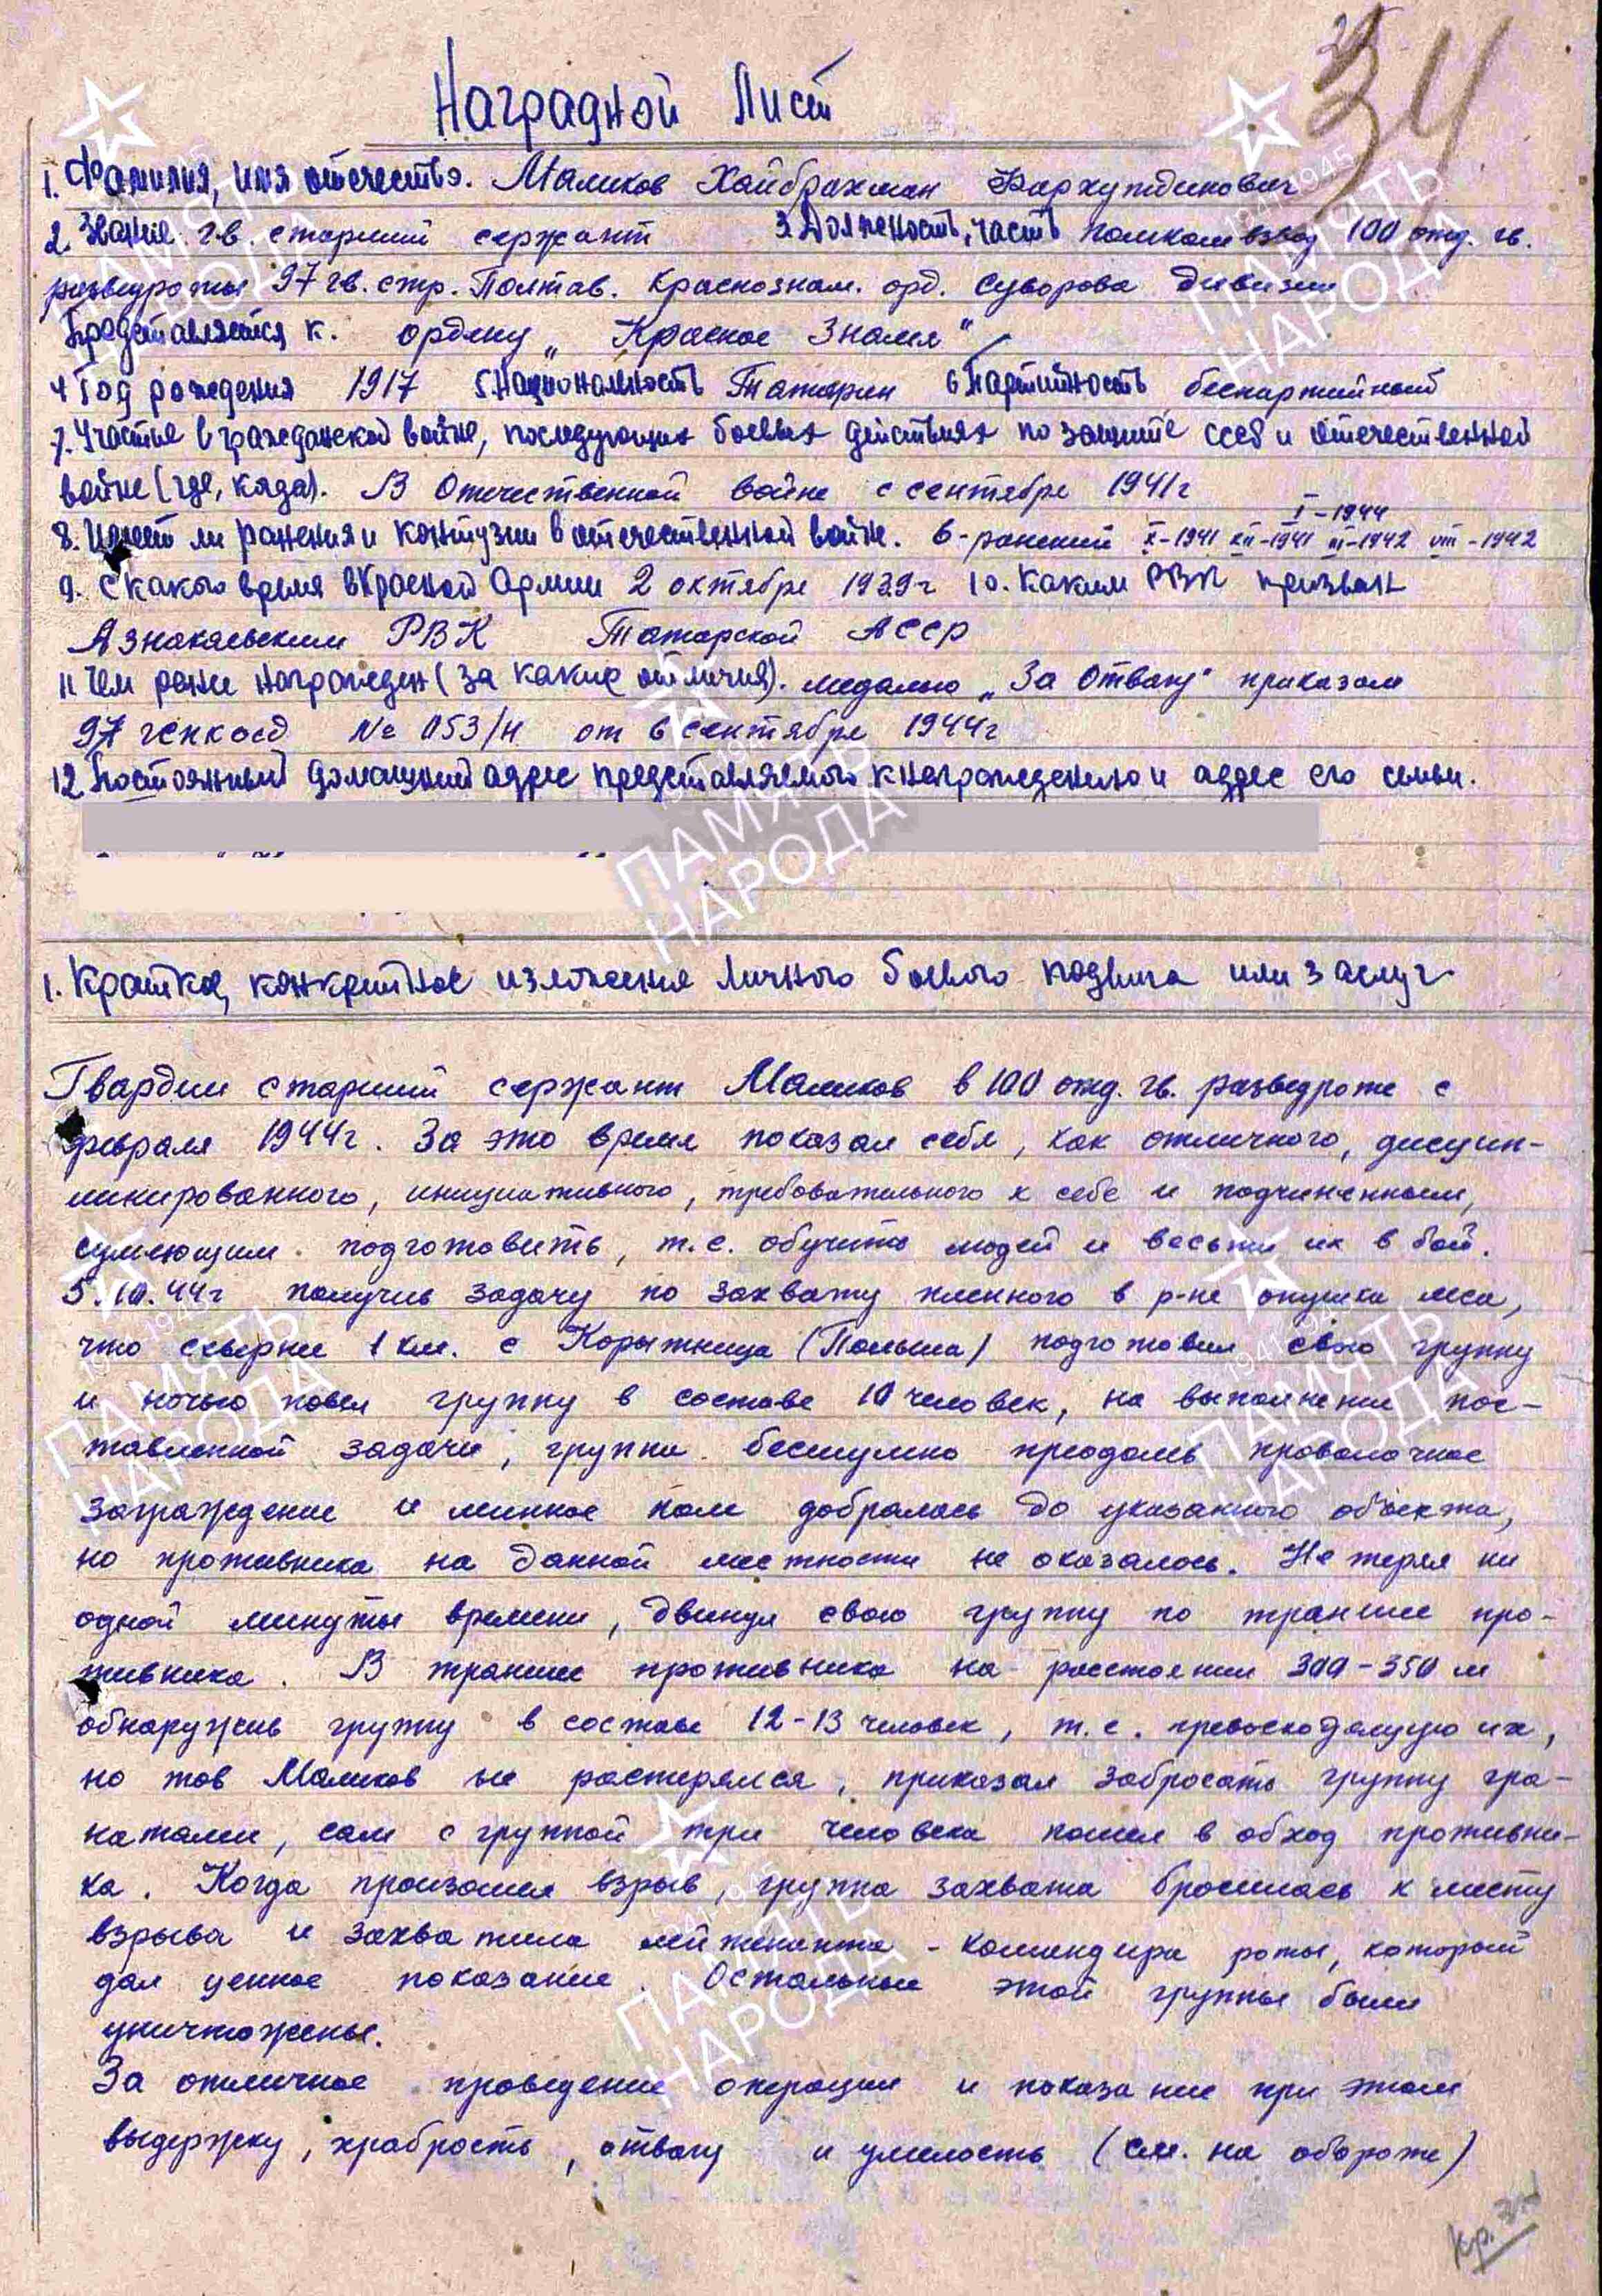 34
Наградной Лист
1. Фамилия, имя отчество. Маликов Хайбрахман Фархутдинович
2. Звание гв. старший сержант 3. Должность, часть помкомвзвод 100 отд. гв.
разведроты 97 гв. стр. Полтав. Краснознам. орд. Суворова дивизии
Представляется к. ордену „Красное Знамя"
4 Год рождения 1917 5. Национальность Татарин 6 Партийность беспартийный
7. Участие в гражданской войне, последующих боевых действиях по защите СССР и отечественной
войне (где, когда). В Отечественной войне с сентября 1941 г
I-1944
8. Имеет ли ранения и контузии в отечественной войне. 6-ранений X-1941 XII-1941 III-1942 VIII-1942
9. С какого время в Красной Армии 2 октября 1939 г 10. Каким РВК призван
Азнакаевским РВК Татарской АССР
11 Чем ранее награжден (за какие отличия). медалью „За Отвагу" приказом
97 гвксд № 053/н от 6 сентября 1944 г
12. Постоянный домашний адрес представляемого к награждению и адрес его семьи.
1. Краткое, конкретное изложения личного боевого подвига или заслуг
Гвардии старший сержант Маликов в 100 отд. гв. разведроте с
февраля 1944 г. За это время показал себя, как отличного, дисцип-
линированного, инициативного, требовательного к себе и подчиненным,
сумеющим подготовить, т.е. обучить людей и весьти их в бой.
5.10.44 г получив задачу по захвату пленного в р-не опушка леса,
что севернее 1 км. с Корытница (Польша) подготовил свою группу
и ночью повел группу в составе 10 человек, на выполнение пос-
тавленной задачи, группа бесшумно преодолев проволочное
заграждение и минное поле добралась до указанного объекта,
но противника на данной местности не оказалось. Не теряя ни
одной минуты времени, двинул свою группу по траншее про-
тивника. В траншее противника на расстоянии 300-350 м
обнаружив группу в составе 12-13 человек, т.е. превосходящую их,
но тов Маликов не растерялся, приказал забросать группу гра-
натами, сам с группой три человека пошел в обход противни-
ка. Когда произошел взрыв, группа захвата бросилась к месту
взрыва и захватила лейтенанта - командира роты, который
дал ценное показание. Остальные этой группы были
уничтожены.
За отличное проведение операции и показание при этом
выдержку, храбрость, отвагу и умелость (см. на обороте)
Кр. Зн
ПАМЯТЬ
НАРОДА
1941-1945
ПАМЯТЬ
НАРОДА
1941-1945
ПАМЯТЬ
НАРОДА
1941-1945
ПАМЯТЬ
НАРОДА
1941-1945
ПАМЯТЬ
НАРОДА
1941-1945
ПАМЯТЬ
НАРОДА